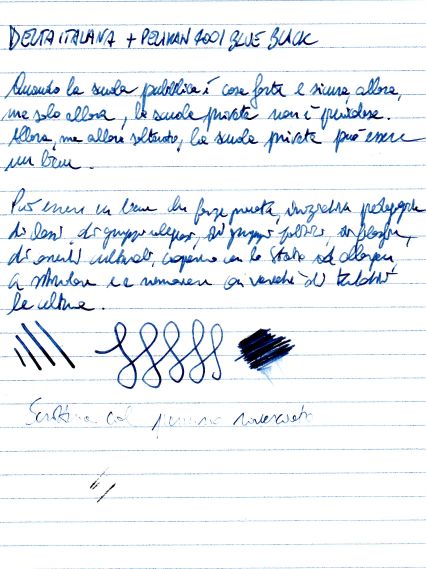 DELTA ITALIANA + PELIKAN 4001 BLUE BLACK
Quando la scuola pubblica è cosa forte e sicura, allora,
ma solo allora, la scuola privata non è pericolosa.
Allora, ma allora soltanto, la scuola privata può essere
un bene.
Può essere un bene che forze private, iniziative pedagogiche
di classi, di gruppi religiosi, di gruppi politici, di filosofie,
di correnti culturali, cooperino con lo Stato ad allargare,
a stimolare e a rinnovare con varietà di tentativi
la cultura.
Scrittura col pennino rovesciato